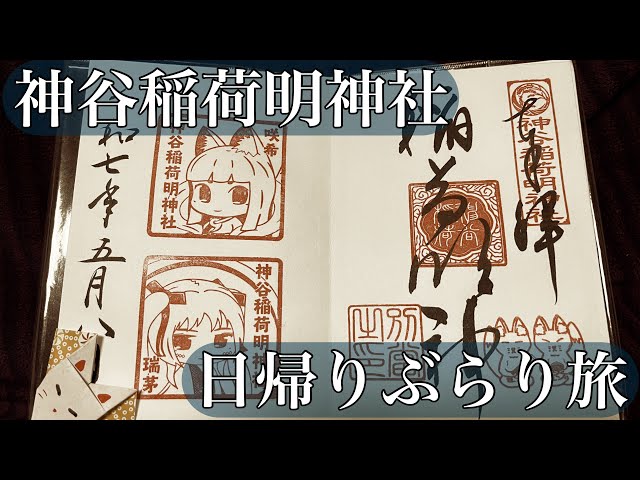 神谷稲荷明神社
奉拝
神谷稲荷明神社
稲荷明神
別當之印
咲希
神谷稲荷明神社
神谷稲荷明神
瑞茅
和七年五月八
日帰りぶらり旅